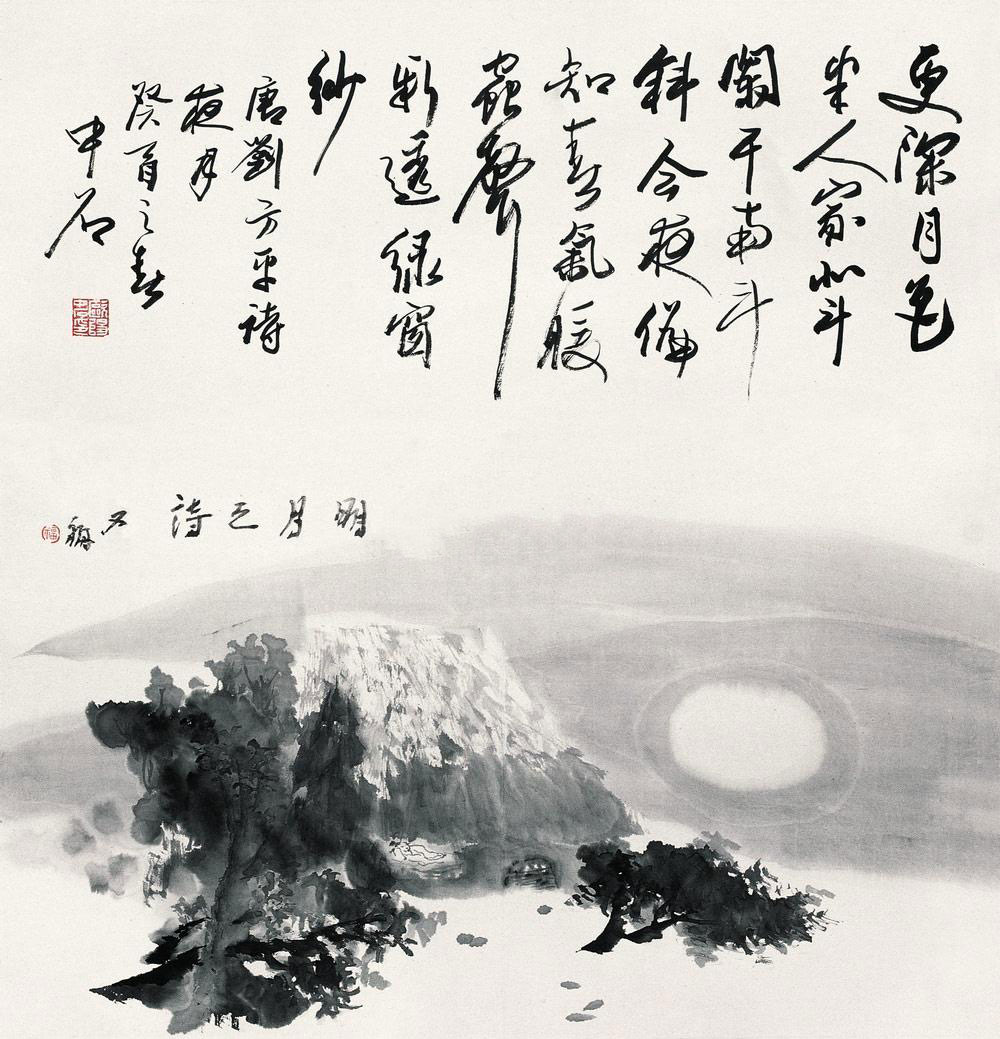 更深月色
半人家北斗
闌干南斗
斜今夜偏
知春氣暖
蟲聲
新透綠窗
紗
唐劉方平詩
夜月
癸酉之春
中石
明月之詩